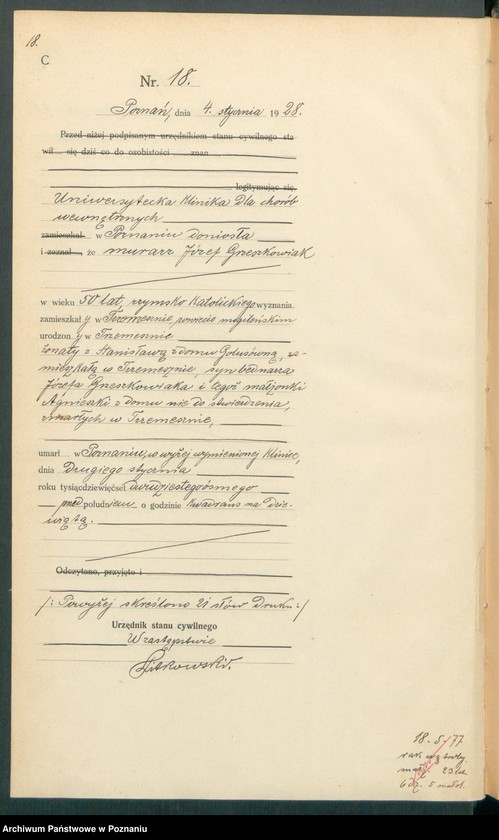 18.
C
Nr. 18.
Poznań, dnia 4. stycznia 1928.
Przed niżej podpisanym urzędnikiem stanu cywilnego sta
wił się dziś co do osobistości znan
legitymując się.
Uniwersytecka Klinika dla chorób
wewnętrznych
zamieszkał w Poznaniu doniosła
i zeznał, że murarz Józef Grzeszkowiak
w wieku 50 lat, rzymsko katolickiego wyznania.
zamieszkały w Trzemesznie, powiecie mogileńskim
urodzony w Trzemesznie
żonaty z Stanisławą z domu za-
mieszkałą w Trzemesznie, syn bednarza
Józefa Grzeszkowiaka i tegoż małżonki
Agnieszki z domu nie do stwierdzenia,
zmarłych w Trzemesznie,
umarł w Poznaniu, w wyżej wymienionej klinice,
dnia drugiego stycznia
roku tysiącdziewięćset dwudziestegoósmego
przed południem o godzinie kwadrans na dzie-
wiątą.
Odczytano, przyjęto i
/: Powyżej skreślono 21 słów druku :/
Urzędnik stanu cywilnego
W zastępstwie
18-5-77
rak wątroby
23
5
Archiwum Państwowe w Poznaniu